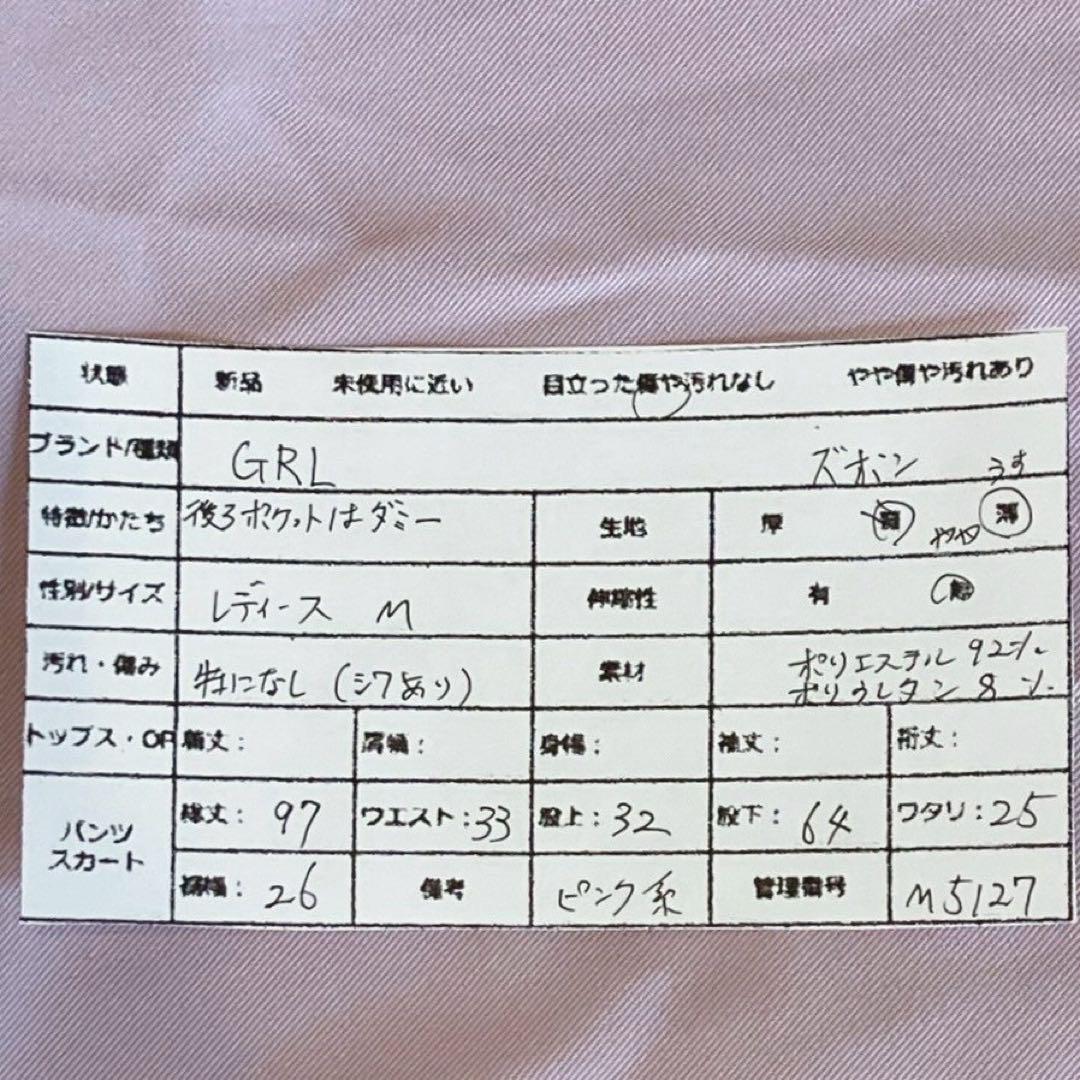 状態 新品 未使用に近い 目立った傷や汚れなし やや傷や汚れあり
ブランド/種類 GRL ズボン うす
特徴/かたち 後ろポケットはダミー 生地 厚 普 やや 薄
性別/サイズ レディース M 伸縮性 有 無
汚れ・傷み 特になし (シワあり) 素材 ポリエステル 92%
ポリウレタン 8%
トップス・OP 着丈: 肩幅: 身幅: 袖丈: 裄丈:
パンツ
スカート
総丈: 97 ウエスト: 33 股上: 32 股下: 64 ワタリ: 25
裾幅: 26 備考 ピンク系 管理番号 M5127